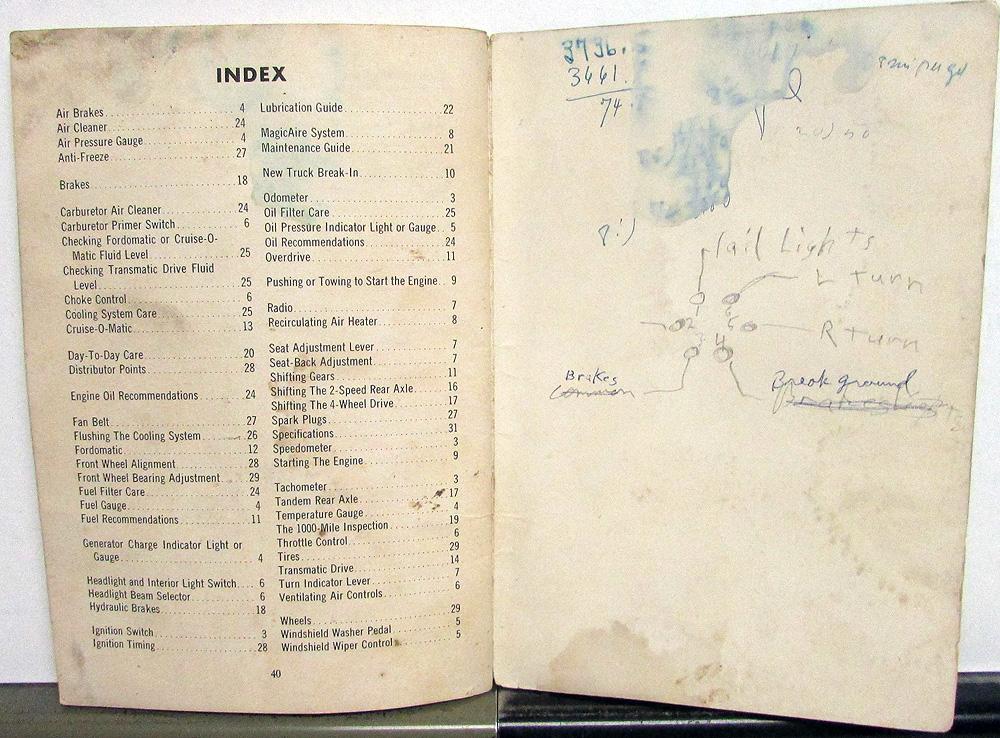 INDEX
Air Brakes 4
Air Cleaner 24
Air Pressure Gauge 4
Anti-Freeze 27
Brakes 18
Carburetor Air Cleaner 24
Carburetor Primer Switch 6
Checking Fordomatic or Cruise-O-
Matic Fluid Level 25
Checking Transmatic Drive Fluid
Level 25
Choke Control 6
Cooling System Care 25
Cruise-O-Matic 13
Day-To-Day Care 20
Distributor Points 28
Engine Oil Recommendations 24
Fan Belt 27
Flushing The Cooling System 26
Fordomatic 12
Front Wheel Alignment 28
Front Wheel Bearing Adjustment 29
Fuel Filter Care 24
Fuel Gauge 4
Fuel Recommendations 11
Generator Charge Indicator Light or
Gauge 4
Headlight and Interior Light Switch 6
Headlight Beam Selector 6
Hydraulic Brakes 18
Ignition Switch 3
Ignition Timing 28
Lubrication Guide 22
MagicAire System 8
Maintenance Guide 21
New Truck Break-In 10
Odometer 3
Oil Filter Care 25
Oil Pressure Indicator Light or Gauge 5
Oil Recommendations 24
Overdrive 11
Pushing or Towing to Start the Engine 9
Radio 7
Recirculating Air Heater 8
Seat Adjustment Lever 7
Seat-Back Adjustment 7
Shifting Gears 11
Shifting The 2-Speed Rear Axle 16
Shifting The 4-Wheel Drive 17
Spark Plugs 27
Specifications 31
Speedometer 3
Starting The Engine 9
Tachometer 3
Tandem Rear Axle 17
Temperature Gauge 4
The 1000-Mile Inspection 19
Throttle Control 6
Tires 29
Transmatic Drive 14
Turn Indicator Lever 7
Ventilating Air Controls 6
Wheels 29
Windshield Washer Pedal 5
Windshield Wiper Control 5
40
3736.
3661.
74.
Tail Lights
L turn
R turn
Brakes
Common
Break ground